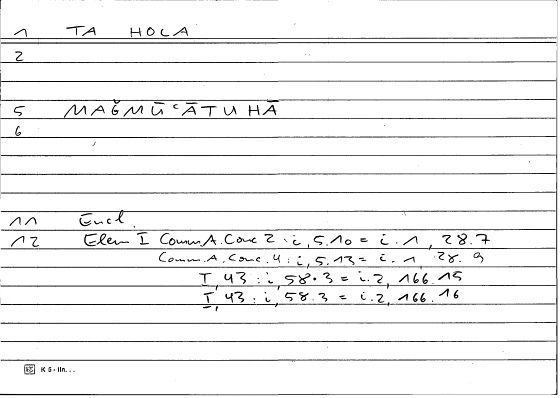 1 TA HOLA
2
5 MAǦMŪ ʿĀTUHĀ
6
11 Eucl.
12 Elem I Comm.A.Conc 2 : i, 5.10 = i. 1, 28.7
Comm.A.Conc.4 : i, 5.13 = i. 1, 28.9
I, 43 : i, 58.3 = i.2, 166.15
I, 43 : i, 58.3 = i.2, 166.16
K 5 - lin. . .